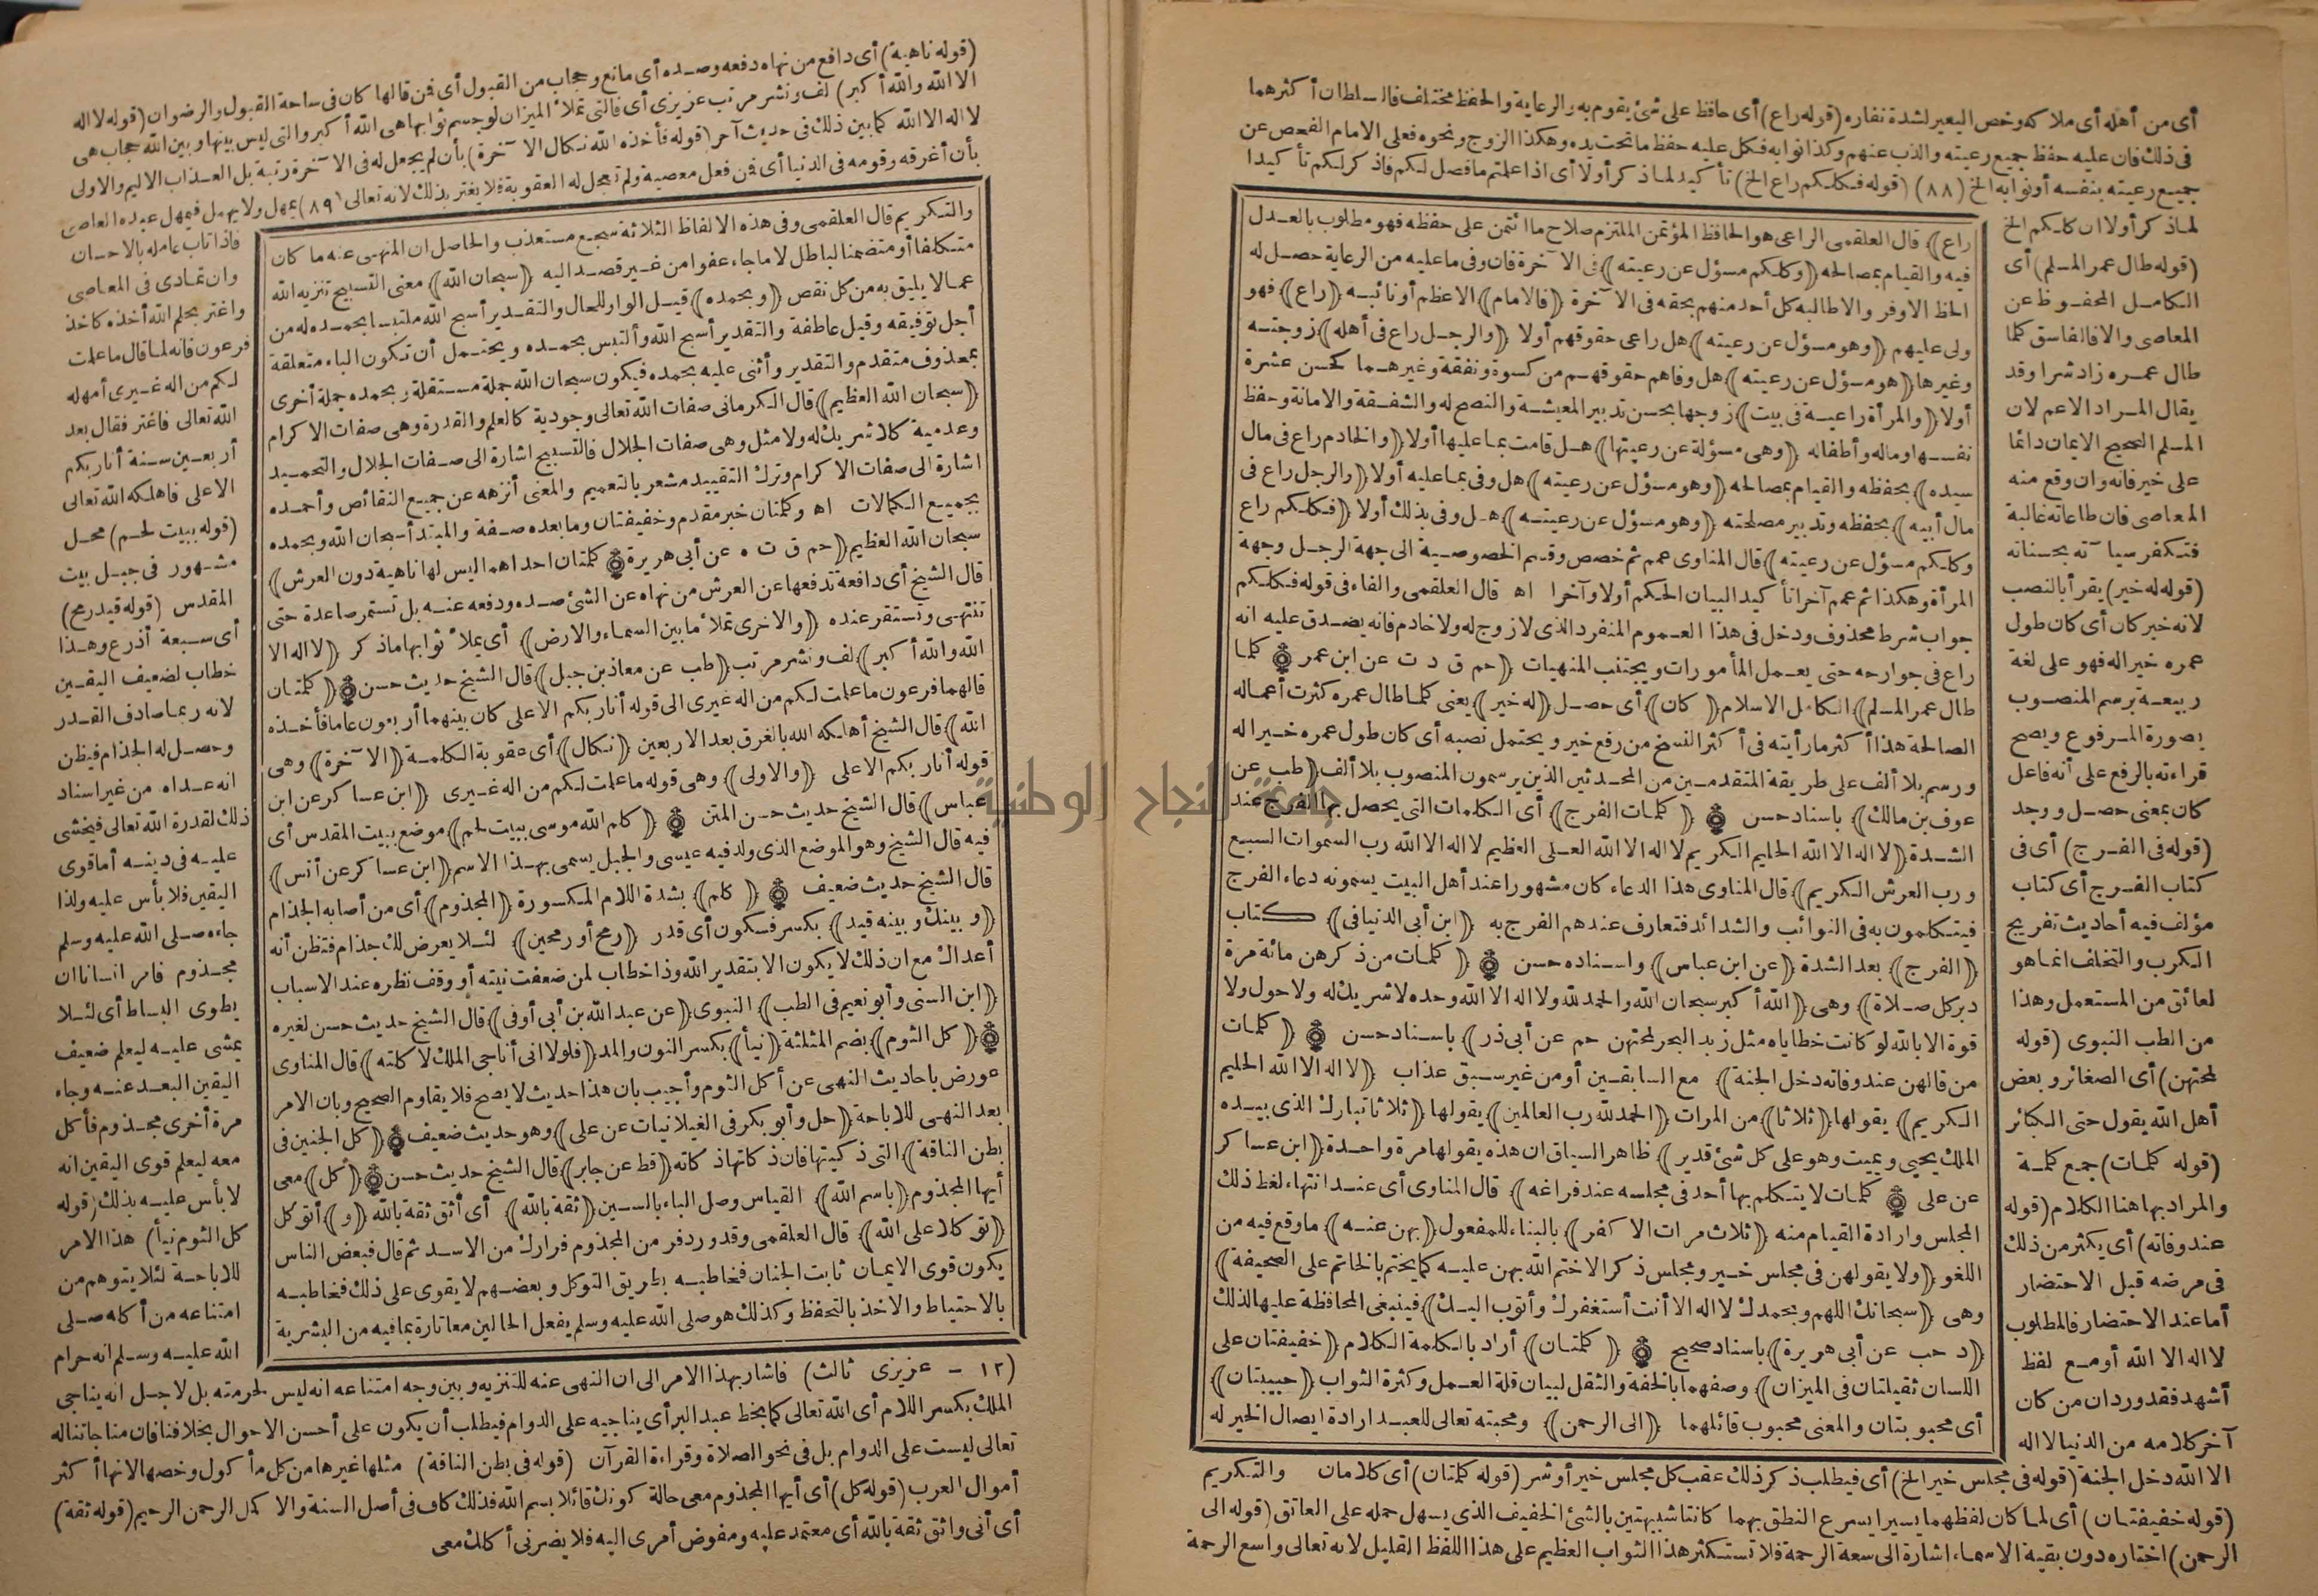 أى من أهله أى ملاكه وخص البعير لشدة نفاره (قوله راع) أى حافظ على شئ يقوم به والرعاية والحفظ مختلف فالسلطان أكثرهما
فى ذلك فان عليه حفظ جميع رعيته والذب عنهم وكذا نوابه فكل عليه حفظ ما تحت يده وهكذا الزوج ونحوه فعلى الامام الفحص عن
جميع رعيته بنفسه أو نوابه الخ (٨٨) (قوله فكلكم راع الخ) تأكيد لما ذكر أولا أى اذا علتم ما فصل لكم فاذكر لكم تأكيدا
لما ذكر أولا ان كلكم الخ
(قوله طال عمر المسلم) أى
الكامل المحفوظ عن
المعاصى والا فالفاسق كلما
طال عمره زاد شرا وقد
يقال المراد الاعم لان
المسلم الصحيح الايمان دائما
على خير فانه وان وقع منه
المعاصى فان طاعاته غالبة
فتكفر سيآته بحسناته
(قوله له خير) يقرأ بالنصب
لانه خبر كان أى كان طول
عمره خيرا له فهو على لغة
ربيعة برسم المنصوب
بصورة المرفوع ويصح
قراءته بالرفع على أنه فاعل
كان بمعنى حصل ووجد
(قوله فى الفرج) أى فى
كتاب الفرج أى كتاب
مؤلف فيه أحاديث تفريج
الكرب والتخلف انما هو
لعائق من المستعمل وهذا
من الطب النبوى (قوله
لمحتهن) أى الصغائر وبعض
أهل الله يقول حتى الكبائر
(قوله كلمات) جمع كلمة
والمراد بها هنا الكلام (قوله
عند وفاته) أى يكثر من ذلك
فى مرضه قبل الاحتضار
أما عند الاحتضار فالمطلوب
لا اله الا الله أو مع لفظ
أشهد فقد ورد ان من كان
آخر كلامه من الدنيا لا اله
راع) قال العلقمى الراعى هو الحافظ المؤتمن الملتزم صلاح ما ائتمن على حفظه فهو مطلوب بالعدل
فيه والقيام بمصالحه (وكلكم مسؤل عن رعيته) فى الآخرة فان وفى ما عليه من الرعاية حصل له
الحظ الاوفر والا طالبه كل أحد منهم بحقه فى الآخرة (فالامام) الاعظم أو نائبه (راع) فهو
ولى عليهم (وهو مسؤل عن رعيته) هل راعى حقوقهم أولا (والرجل راع فى أهله) زوجته
وغيرها (هو مسؤل عن رعيته) هل وفاهم حقوقهم من كسوة ونفقة وغيرهما كحسن عشرة
أولا (والمرأة راعية فى بيت) زوجها بحسن تدبير المعيشة والنصح له والشفقة والامانة وحفظ
نفسها وماله وأطفاله (وهى مسؤلة عن رعيتها) هل قامت بما عليها أولا (والخادم راع فى مال
سيده) بحفظه والقيام بمصالحه (وهو مسؤل عن رعيته) هل وفى بما عليه أولا (والرجل راع فى
مال أبيه) بحفظه وتدبير مصلحته (وهو مسؤل عن رعيته) هل وفى بذلك أولا (فكلكم راع
وكلكم مسؤل عن رعيته) قال المناوى عمم ثم خصص وقسم الخصوصية الى جهة الرجل وجهة
المرأة وهكذا ثم عمم آخرا تأكيد البيان الحكم أولا وآخرا اه قال العلقمى والفاء فى قوله فكلكم
جواب شرط محذوف ودخل فى هذا العموم المنفرد الذى لا زوج له ولا خادم فانه يصدق عليه انه
راع فى جوارحه حتى يعمل المأمورات ويجتنب المنهيات (حم ق د ت عن ابن عمر ۞ كلما
طال عمر المسلم) الكامل الاسلام (كان) أى حصل (له خير) يعنى كلما طال عمره كثرت أعماله
الصالحة هذا أكثر ما رأيته فى أكثر النسخ من رفع خير ويحتمل نصبه أى كان طول عمره خيرا له
ورسم بلا ألف على طريقة المتقدمين من المحدثين الذين يرسمون المنصوب بلا ألف (طب عن
عوف بن مالك) باسناد حسن ۞ (كلمات الفرج) أى الكلمات التى يحصل بها الفرج عند
الشدة (لا اله الا الله الحليم الكريم لا اله الا الله العلى العظيم لا اله الا الله رب السموات السبع
ورب العرش الكريم) قال المناوى هذا الدعاء كان مشهورا عند أهل البيت يسمونه دعاء الفرج
فيتكلمون به فى النوائب والشدائد فتعارف عندهم الفرج به (ابن أبى الدنيا فى) كتاب
(الفرج) بعد الشدة (عن ابن عباس) واسناده حسن ۞ (كلمات من ذكرهن مائة مرة
دبر كل صلاة) وهى (الله أكبر سبحان الله والحمد لله ولا اله الا الله وحده لا شريك له ولا حول ولا
قوة الا بالله لو كانت خطاياه مثل زبد البحر لمحتهن حم عن أبى ذر) باسناد حسن ۞ (كلمات
من قالهن عند وفاته دخل الجنة) مع السابقين أو من غير سبق عذاب (لا اله الا الله الحليم
الكريم) يقولها (ثلاثا) من المرات (الحمد لله رب العالمين) يقولها (ثلاثا تبارك الذى بيده
الملك يحيى ويميت وهو على كل شئ قدير) ظاهر السياق ان هذه يقولها مرة واحدة (ابن عساكر
عن على ۞ كلمات لا يتكلم بها أحد فى مجلسه عند فراغه) قال المناوى أى عند انتهاء لغط ذلك
المجلس وارادة القيام منه (ثلاث مرات الا كفر) بالبناء للمفعول (بهن عنه) ما وقع فيه من
اللغو (ولا يقولهن فى مجلس خير ومجلس ذكر الا ختم الله بهن عليه كما يختم بالخاتم على الصحيفة)
وهى (سبحانك اللهم وبحمدك لا اله الا أنت أستغفرك وأتوب اليك) فينبغى المحافظة عليها لذلك
(د حب عن أبى هريرة) باسناد صحيح ۞ (كلمتان) أراد بالكلمة الكلام (خفيفتان على
اللسان ثقيلتان فى الميزان) وصفهما بالخفة والثقل لبيان قلة العمل وكثرة الثواب (حبيبتان)
أى محبوبتان والمعنى محبوب قائلهما (الى الرحمن) ومحبته تعالى للعبد ارادة ايصال الخير له
الا الله دخل الجنة (قوله فى مجلس خير الخ) أى فيطلب ذكر ذلك عقب كل مجلس خير أو شر (قوله كلمتان) أى كلامان والتكريم
(قوله خفيفتان) أى لما كان لفظهما يسيرا يسرع النطق بهما كانتا شبيهتين بالشئ الخفيف الذى يسهل حمله على العاتق (قوله الى
الرحمن) اختاره دون بقية الاسماء اشارة الى سعة الرحمة فلا تستكثر هذا الثواب العظيم على هذا اللفظ القليل لانه تعالى واسع الرحمة
(قوله ناهية) أى دافع من نهاه دفعه وصده أى مانع وحجاب من القبول أى فمن قالها كان فى ساحة القبول والرضوان (قوله لا اله
الا الله والله أكبر) لف ونشر مرتب عزيزى أى فالتى تملأ الميزان لو جسم ثوابها هى الله أكبر والتى ليس بينها وبين الله حجاب هى
لا اله الا الله كما بين ذلك فى حديث آخر (قوله فأخذه الله نكال الآخرة) بأن لم يجعل له فى الآخرة رتبة بل العذاب الاليم والاولى
بأن أغرقه وقومه فى الدنيا أى فمن فعل معصية ولم تعجل له العقوبة فلا يغتر بذلك لانه تعالى (٨٩) يمهل ولا يهمل فيمهل عبده العاصى
والتكريم قال العلقمى وفى هذه الالفاظ الثلاثة سجع مستعذب والحاصل ان المنهى عنه ما كان
متكلفا أو متضمنا لباطل لا ما جاء عفوا من غير قصد اليه (سبحان الله) معنى التسبيح تنزيه الله
عما لا يليق به من كل نقص (وبحمده) قيل الواو للحال والتقدير أسبح الله ملتبسا بحمده له من
أجل توفيقه وقيل عاطفة والتقدير أسبح الله وألتبس بحمده ويحتمل أن تكون الباء متعلقة
بمحذوف متقدم والتقدير وأثنى عليه بحمده فيكون سبحان الله جملة مستقلة وبحمده جملة أخرى
(سبحان الله العظيم) قال الكرمانى صفات الله تعالى وجودية كالعلم والقدرة وهى صفات الاكرام
وعدمية كلا شريك له ولا مثل وهى صفات الجلال فالتسبيح اشارة الى صفات الجلال والتحميد
اشارة الى صفات الاكرام وترك التقييد مشعر بالتعميم والمعنى أنزهه عن جميع النقائص وأحمده
بجميع الكمالات اه وكلمتان خبر مقدم وخفيفتان وما بعده صفة والمبتدأ سبحان الله وبحمده
سبحان الله العظيم (حم ق ت ه عن أبى هريرة ۞ كلمتان احداهما ليس لها ناهية دون العرش)
قال الشيخ أى دافعة تدفعها عن العرش من نهاه عن الشئ صده ودفعه عنه بل تستمر صاعدة حتى
تنتهى وتستقر عنده (والاخرى تملأ ما بين السماء والارض) أى يملأ ثوابها ما ذكر (لا اله الا
الله والله أكبر) لف ونشر مرتب (طب عن معاذ بن جبل) قال الشيخ حديث حسن ۞ (كلمتان
قالهما فرعون ما علمت لكم من اله غيرى الى قوله أنا ربكم الاعلى كان بينهما أربعون عاما فأخذه
الله) قال الشيخ أهلكه الله بالغرق بعد الاربعين (نكال) أى عقوبة الكلمة (الآخرة) وهى
قوله أنا ربكم الاعلى (والاولى) وهى قوله ما علمت لكم من اله غيرى (ابن عساكر عن ابن
عباس) قال الشيخ حديث حسن المتن ۞ (كلم الله موسى ببيت لحم) موضع ببيت المقدس أى
فيه قال الشيخ وهو الموضع الذى ولد فيه عيسى والجبل يسمى بهذا الاسم (ابن عساكر عن أنس)
قال الشيخ حديث ضعيف ۞ (كلم) بشدة اللام المكسورة (المجذوم) أى من أصابه الجذام
(وبينك وبينه قيد) بكسر فسكون أى قدر (رمح أو رمحين) لئلا يعرض لك جذام فتظن أنه
أعداك مع ان ذلك لا يكون الا بتقدير الله وذا خطاب لمن ضعفت نيته أو وقف نظره عند الاسباب
(ابن السنى وأبو نعيم فى الطب) النبوى (عن عبد الله بن أبى أوفى) قال الشيخ حديث حسن لغيره
۞ (كل الثوم) بضم المثلثة (نيأ) بكسر النون والمد (فلولا انى أناجى الملك لاكلته) قال المناوى
عورض باحاديث النهى عن أكل الثوم وأجيب بان هذا حديث لا يصح فلا يقاوم الصحيح وبان الامر
بعد النهى للاباحة (حل وأبو بكر فى الغيلانيات عن على) وهو حديث ضعيف ۞ (كل الجنين فى
بطن الناقة) التى ذكيتها فان ذكاتها ذكاته (قط عن جابر) قال الشيخ حديث حسن ۞ (كل) معى
أيها المجذوم (باسم الله) القياس وصل الباء بالسين (ثقة بالله) أى أثق ثقة بالله (و) أتوكل
(توكلا على الله) قال العلقمى وقد ورد فر من المجذوم فرارك من الاسد ثم قال فبعض الناس
يكون قوى الايمان ثابت الجنان فخاطبه بطريق التوكل وبعضهم لا يقوى على ذلك فخاطبه
بالاحتياط والاخذ بالتحفظ وكذلك هو صلى الله عليه وسلم يفعل الحالين معا تارة بما فيه من البشرية
فاذا تاب عامله بالاحسان
وان تمادى فى المعاصى
واغتر بحلم الله أخذه كاخذ
فرعون فانه لما قال ما علمت
لكم من اله غيرى أمهله
الله تعالى فاغتر فقال بعد
أربعين سنة أنا ربكم
الاعلى فاهلكه الله تعالى
(قوله ببيت لحم) محل
مشهور فى جبل بيت
المقدس (قوله قيد رمح)
أى سبعة أذرع وهذا
خطاب لضعيف اليقين
لانه ربما صادف القدر
وحصل له الجذام فيظن
انه عداه من غير اسناد
ذلك لقدرة الله تعالى فيخشى
عليه فى دينه أما قوى
اليقين فلا بأس عليه ولذا
جاءه صلى الله عليه وسلم
مجذوم فامر انسانا ان
يطوى البساط أى لئلا
يمشى عليه ليعلم ضعيف
اليقين البعد عنه وجاء
مرة أخرى مجذوم فأكل
معه ليعلم قوى اليقين انه
لا بأس عليه بذلك (قوله
كل الثوم نيأ) هذا الامر
للاباحة لئلا يتوهم من
امتناعه من أكله صلى
الله عليه وسلم انه حرام
(١٢ - عزيزى ثالث) فاشار بهذا الامر الى ان النهى عنه للتنزيه وبين وجه امتناعه انه ليس لحرمته بل لاجل انه يناجى
الملك بكسر اللام أى الله تعالى كما بخط عبد البر أى يناجيه على الدوام فيطلب أن يكون على أحسن الاحوال بخلافنا فان مناجاتنا له
تعالى ليست على الدوام بل فى نحو الصلاة وقراءة القرآن (قوله فى بطن الناقة) مثلها غيرها من كل مأكول وخصها لانها أكثر
أموال العرب (قوله كل) أى أيها المجذوم معى حالة كونك قائلا بسم الله فذلك كاف فى أصل السنة والاكمل الرحمن الرحيم (قوله ثقة)
أى أنى واثق ثقة بالله أى معتمد عليه ومفوض أمرى اليه فلا يضرنى أكلك معى
جامعة النجاح الوطنية